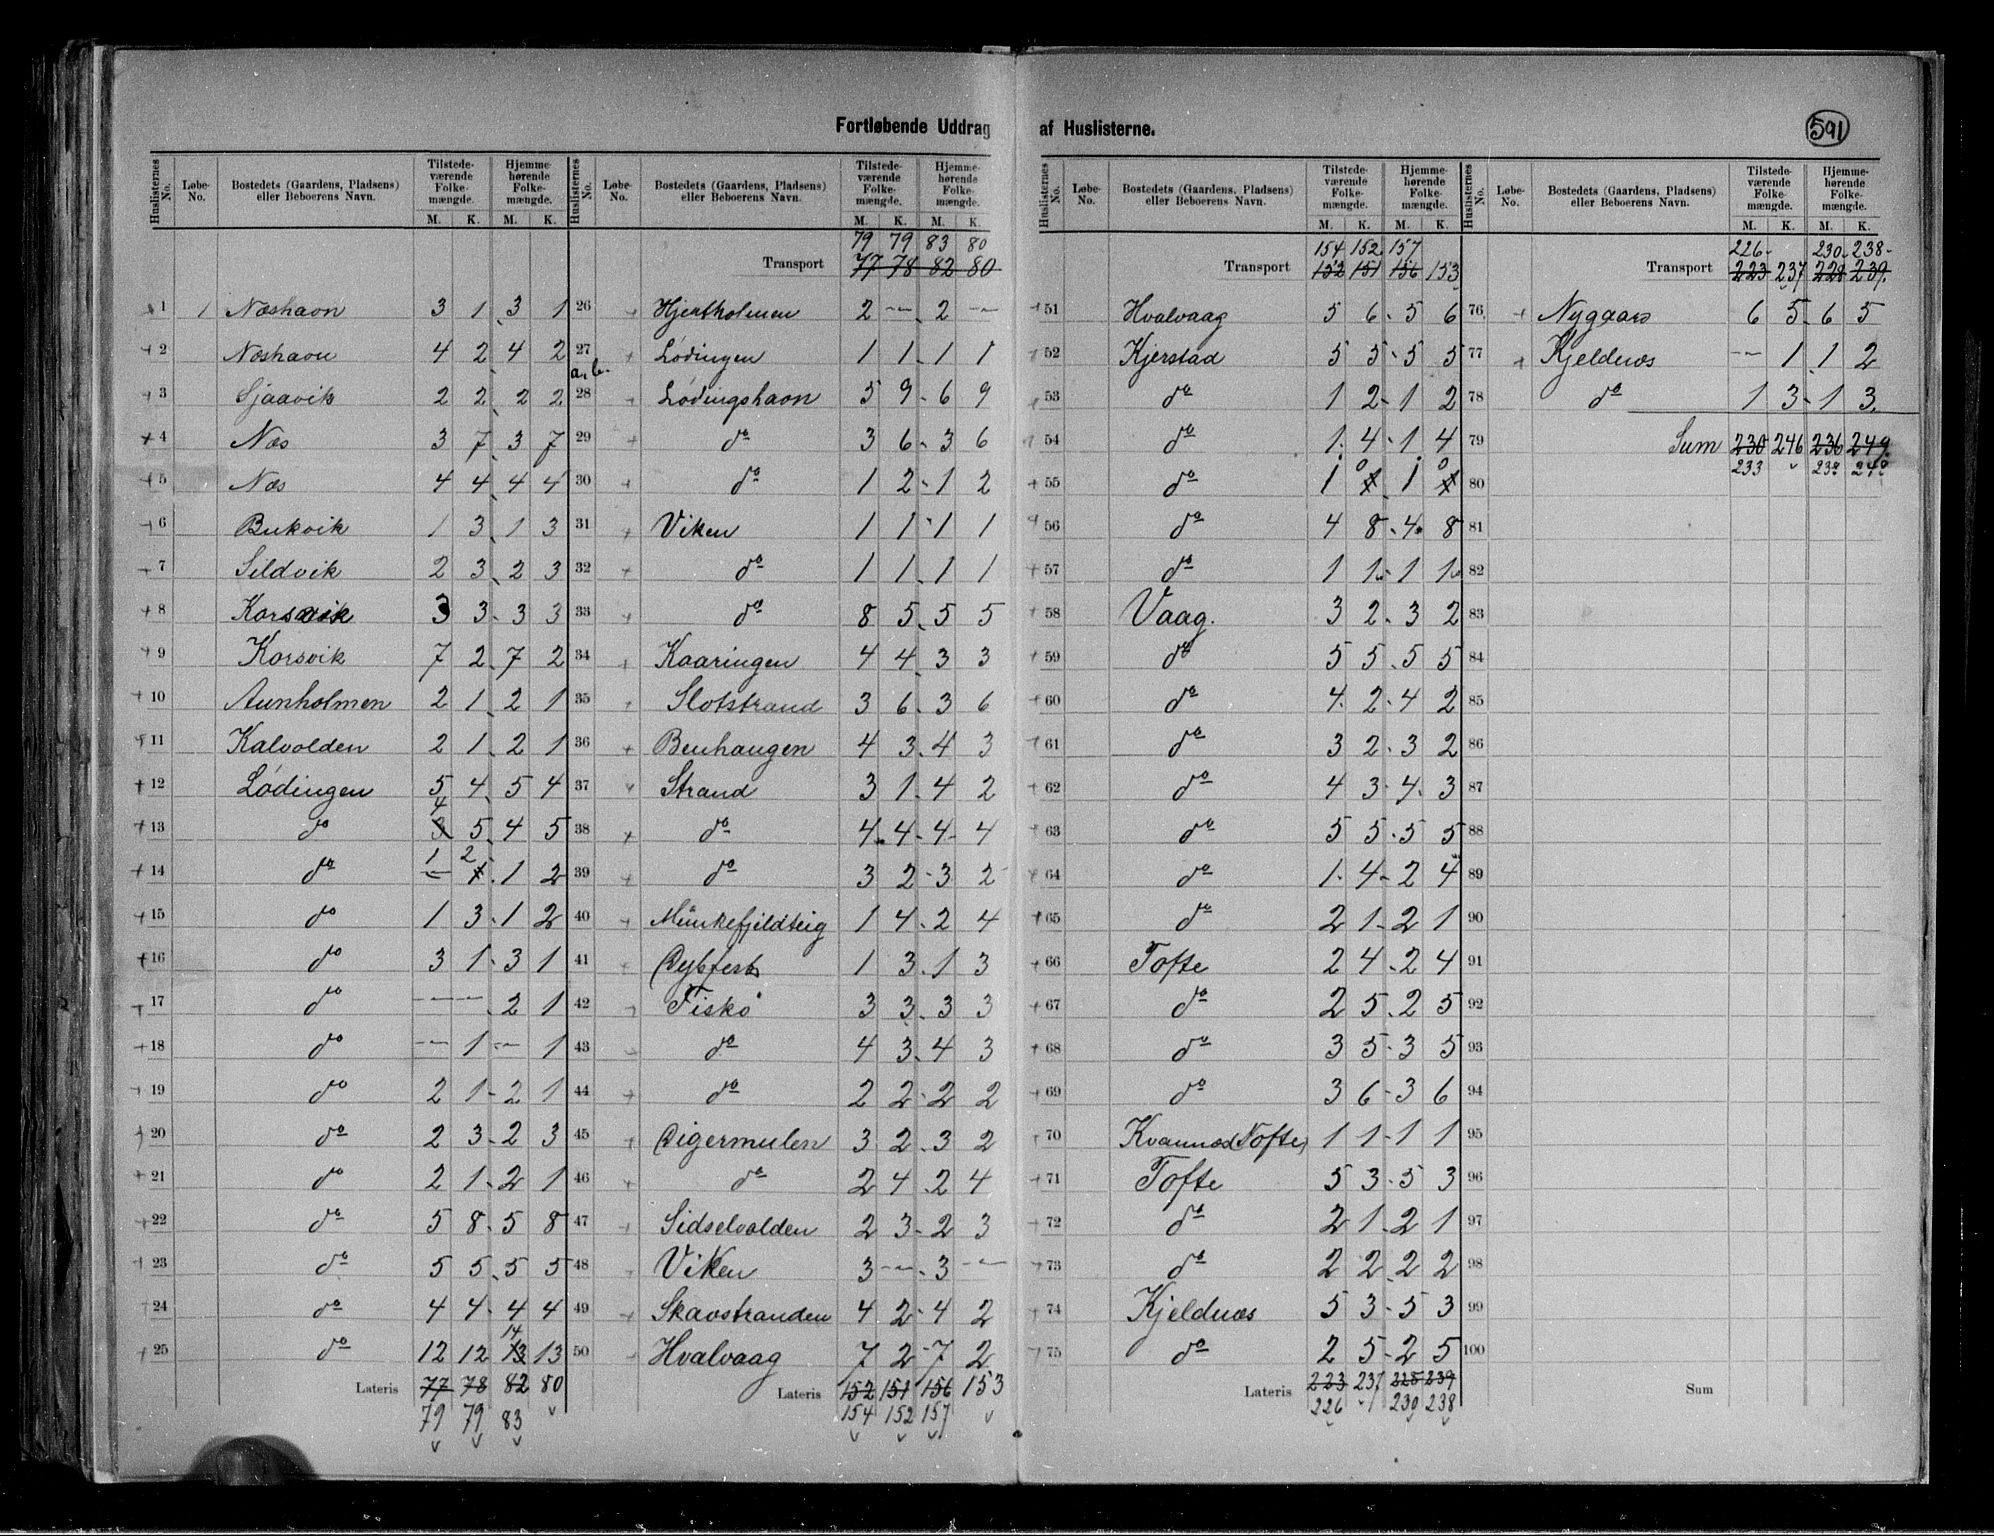 Fortløbende Uddrag af Huslisterne.
591
Huslisternes No. Løbe-No. Bostedets (Gaardens, Pladsens) eller Beboerens Navn. Tilstedeværende Folkemængde. M. K. Hjemmehørende Folkemængde. M. K.
1 1 Næshavn 3 1 3 1
2 Næshavn 4 2 4 2
3 Sjaavik 2 2 2 2
4 Næs 3 7 3 7
5 Næs 4 4 4 4
6 Bukvik 1 3 1 3
7 Sildvik 2 3 2 3
8 Korsvik 3 3 3 3
9 Korsvik 7 2 7 2
10 Aunholmen 2 1 2 1
11 Kalvolden 2 1 2 1
12 Lødingen 5 4 5 4
13 do 4 3 5 4 5
14 do 1 — 2 1 1 2
15 do 1 3 1 2
16 do 3 1 3 1
17 do — — 2 1
18 do — 1 — 1
19 do 2 1 2 1
20 do 2 3 2 3
21 do 2 1 2 1
22 do 5 8 5 8
23 do 5 5 5 5
24 do 4 4 4 4
25 do 12 12 14 13 13
Lateris 77 78 82 80
79 79 83
Huslisternes No. Løbe-No. Bostedets (Gaardens, Pladsens) eller Beboerens Navn. Tilstedeværende Folkemængde. M. K. Hjemmehørende Folkemængde. M. K.
79 79 83 80
Transport 77 78 82 80
26 Hjertholmen 2 — 2 —
27 Lødingen 1 1 1 1
anb.
28 Lødingshavn 5 9 6 9
29 do 3 6 3 6
30 do 1 2 1 2
31 Viken 1 1 1 1
32 do 1 1 1 1
33 do 8 5 5 5
34 Kaaringen 4 4 3 3
35 Slotstrand 3 6 3 6
36 Benhaugen 4 3 4 3
37 Strand 3 1 4 2
38 do 4 4 4 4
39 do 3 2 3 2
40 Munkefjeldteig 1 4 2 4
41 1 3 1 3
42 Fiskø 3 3 3 3
43 do 4 3 4 3
44 do 2 2 2 2
45 Digermulen 3 2 3 2
46 do 2 4 2 4
47 Sidselvolden 2 3 2 3
48 Viken 3 — 3 —
49 Skavstranden 4 2 4 2
50 Hvalvaag 7 2 7 2
Lateris 152 151 156 153
154 152 157
Huslisternes No. Løbe-No. Bostedets (Gaardens, Pladsens) eller Beboerens Navn. Tilstedeværende Folkemængde. M. K. Hjemmehørende Folkemængde. M. K.
154 152 157
Transport 152 151 156 153
51 Hvalvaag 5 6 5 6
52 Kjerstad 5 5 5 5
53 do 1 2 1 2
54 do 1 4 1 4
55 do 1 0 1 0
56 do 4 8 4 8
57 do 1 1 1 1
58 Vaag. 3 2 3 2
59 do 5 5 5 5
60 do 4 2 4 2
61 do 3 2 3 2
62 do 4 3 4 3
63 do 5 5 5 5
64 do 1 4 2 4
65 do 2 1 2 1
66 Tofte 2 4 2 4
67 do 2 5 2 5
68 do 3 5 3 5
69 do 3 6 3 6
70 Kvannæs (Tofte) 1 1 1 1
71 Tofte 5 3 5 3
72 do 2 1 2 1
73 do 2 2 2 2
74 Kjeldnæs 5 3 5 3
75 do 2 5 2 5
Lateris 223 237 228 239
226 230 238
Huslisternes No. Løbe-No. Bostedets (Gaardens, Pladsens) eller Beboerens Navn. Tilstedeværende Folkemængde. M. K. Hjemmehørende Folkemængde. M. K.
226 230 238
Transport 223 237 228 239
76 Nygaard 6 5 6 5
77 Kjeldnæs — 1 1 2
78 do 1 3 1 3
79 Sum 230 246 236 249
233 238 248
80
81
82
83
84
85
86
87
88
89
90
91
92
93
94
95
96
97
98
99
100
Sum